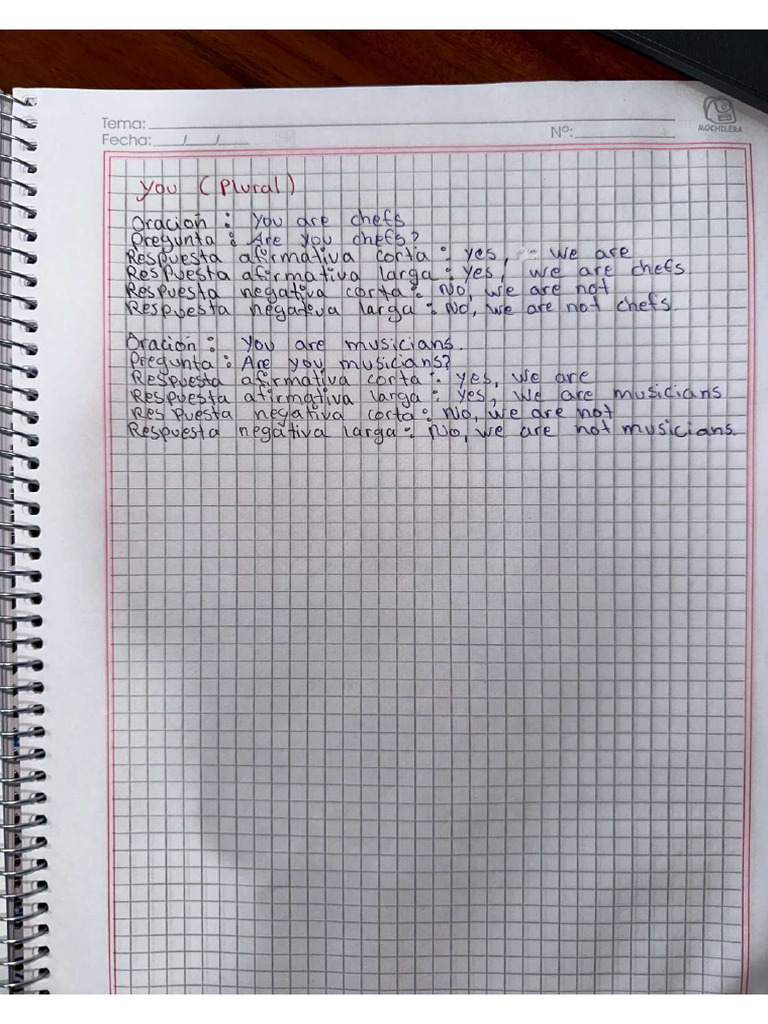 Tema:
Fecha: / /
Nº:
MOCHILERA
You (Plural)
Oracion : You are chefs
Pregunta : Are you chefs?
Respuesta afirmativa corta : yes, we are
Respuesta afirmativa larga : yes, we are chefs
Respuesta negativa corta : No, we are not
Respuesta negativa larga : No, we are not chefs.
Oración : You are musicians.
Pregunta : Are you musicians?
Respuesta afirmativa corta : yes, we are
Respuesta afirmativa larga : yes, we are musicians
Respuesta negativa corta : No, we are not
Respuesta negativa larga : No, we are not musicians.